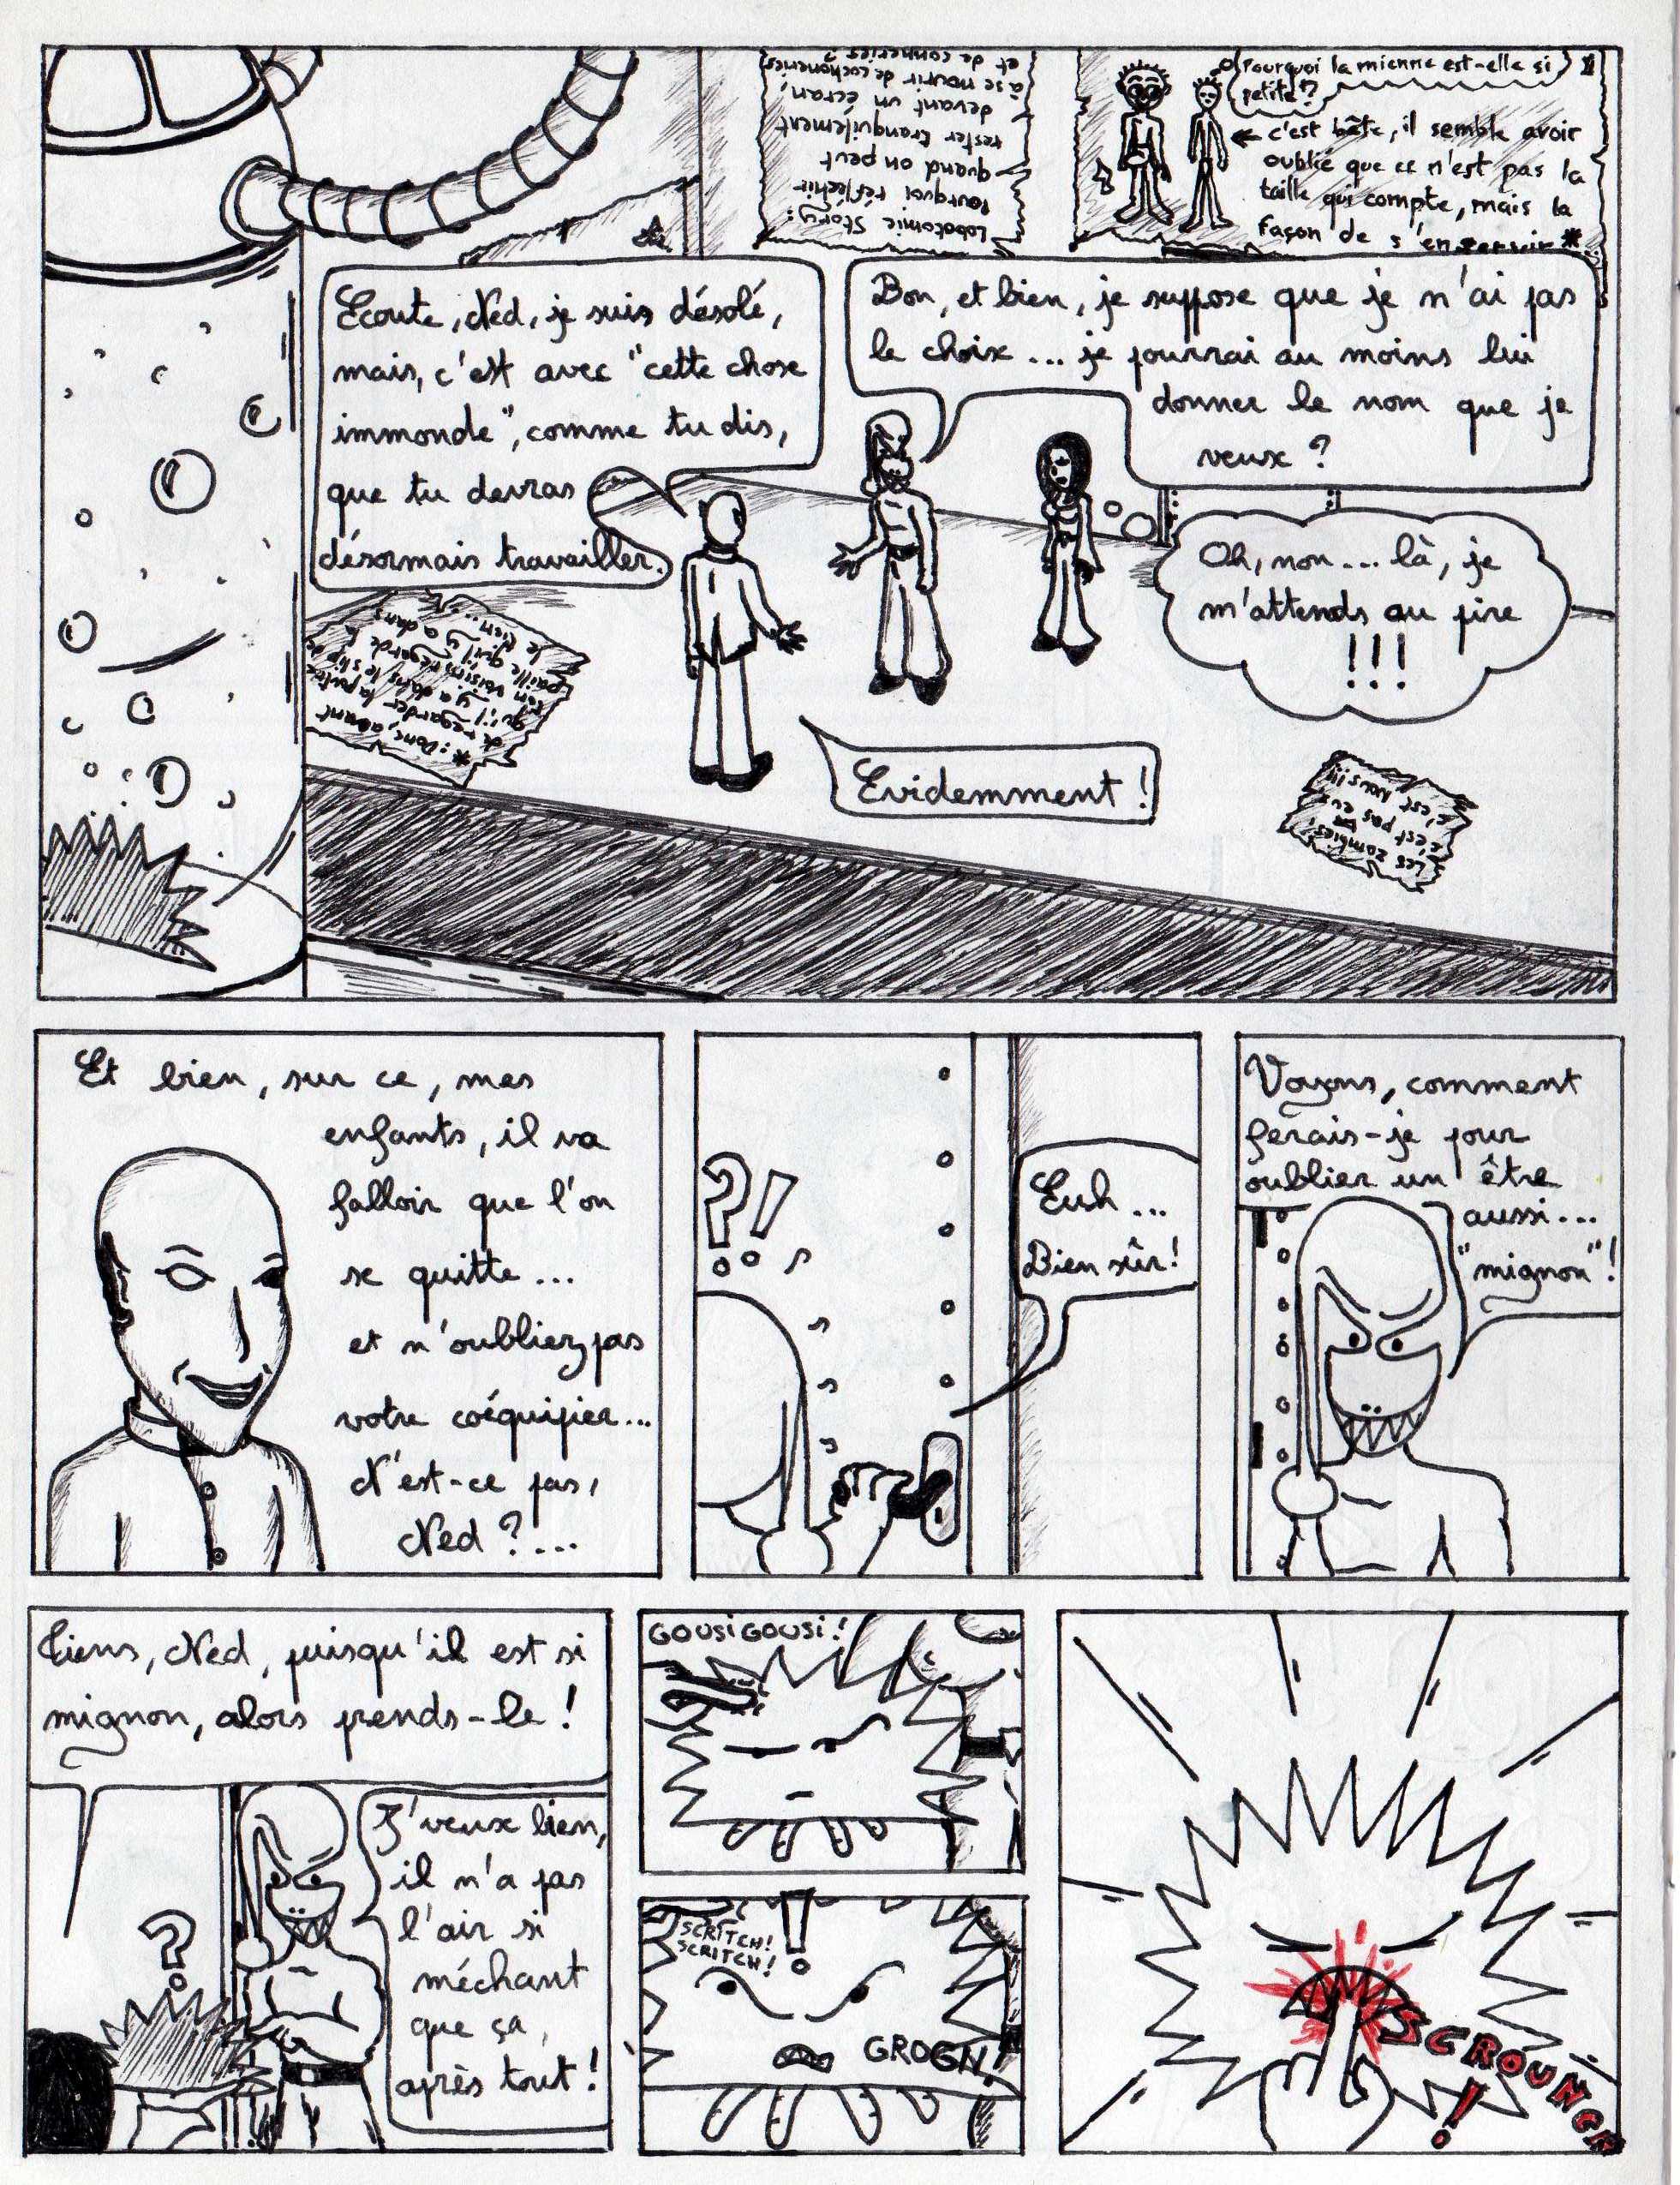 Lobotomie Story:
Pourquoi réfléchir
quand on peut
rester tranquilement
devant un écran,
à se nourir de cochoneries
et de conneries ?
Pourquoi la mienne est-elle si
petite ?
← c'est bête, il semble avoir
oublié que ce n'est pas la
taille qui compte, mais la
façon de s'en servir *
Ecoute, Ned, je suis désolé,
mais, c'est avec "cette chose
immonde", comme tu dis,
que tu devras
désormais travailler.
Bon, et bien, je suppose que je n'ai pas
le choix... je pourrai au moins lui
donner le nom que je
veux ?
Oh, non... là, je
m'attends au pire
!!!
* : Donc, avant
de regarder la poutre
qu'il y a dans le slip de
ton voisin, regarde la
paille qu'il y a dans
le tien...
Evidemment !
Les zombies,
c'est pas eux
c'est nous !!!
Et bien, sur ce, mes
enfants, il va
falloir que l'on
se quitte...
et n'oubliez pas
votre coéquipier...
N'est-ce pas,
Ned ?...
?!
Euh...
Bien sûr!
Voyons, comment
ferais-je pour
oublier un être
aussi...
"mignon" !
Tiens, Ned, puisqu'il est si
mignon, alors prends-le !
?
J'veux bien,
il n'a pas
l'air si
méchant
que ça,
après tout !
GOUSIGOUSI !
SCRITCH!
SCRITCH!
!
GROGN!
SCROUNCH
!